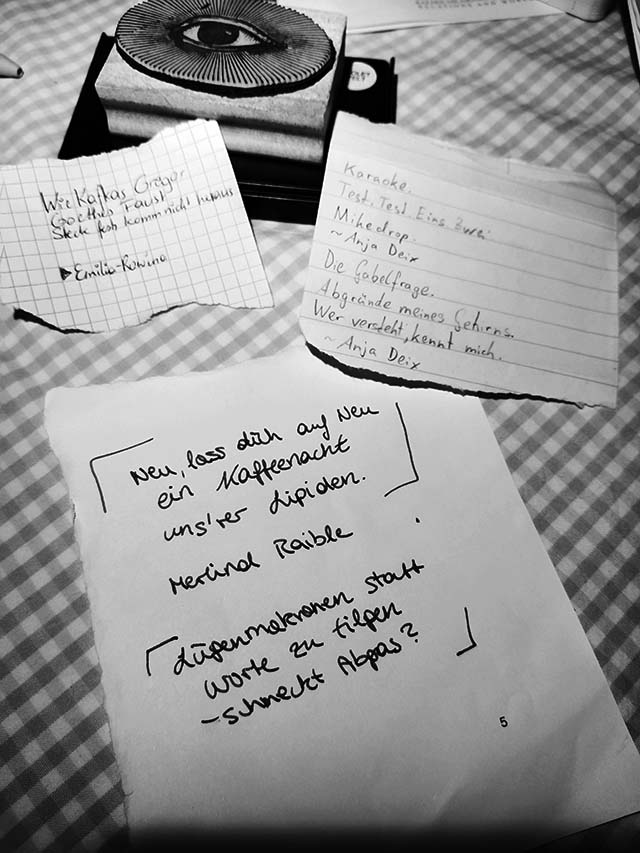 Wie Kafkas Gregor
Goethes Faust
komm nicht
Emilia
Karaoke.
Test, Test Eins Zwei
Mikedrop.
~ Anja Deix
Die Gabelfrage.
Abgründe meines Gehirns.
Wer versteht, kennt mich.
~ Anja Deix
Neu, lass dich auf Neu
ein Kaffeenacht
uns'rer Lipiden.
Merlind Raible
Lügenmakronen statt
Worte zu tilgen
- schmeckt Abgas?
5